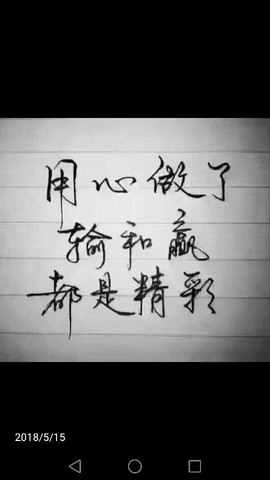 用心做了
输和赢
都是精彩
2018/5/15